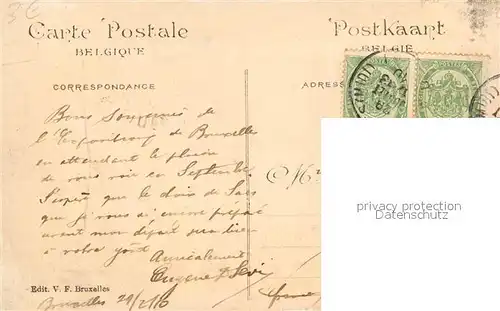 3€
Carte Postale
BELGIQUE
Postkaart
BELGIE
CORRESPONDANCE
ADRES
Bons Souvenirs de
l'Exposition de Bruxelles
en attendant le plaisir
de vous voir en Septembre
J'espère que le choix de
que je vous ai encore préparé
avant mon départ sera bien
à votre goût
Amicalement
Eugène
Edit. V. F. Bruxelles
Bruxelles
privacy protection
Datenschutz